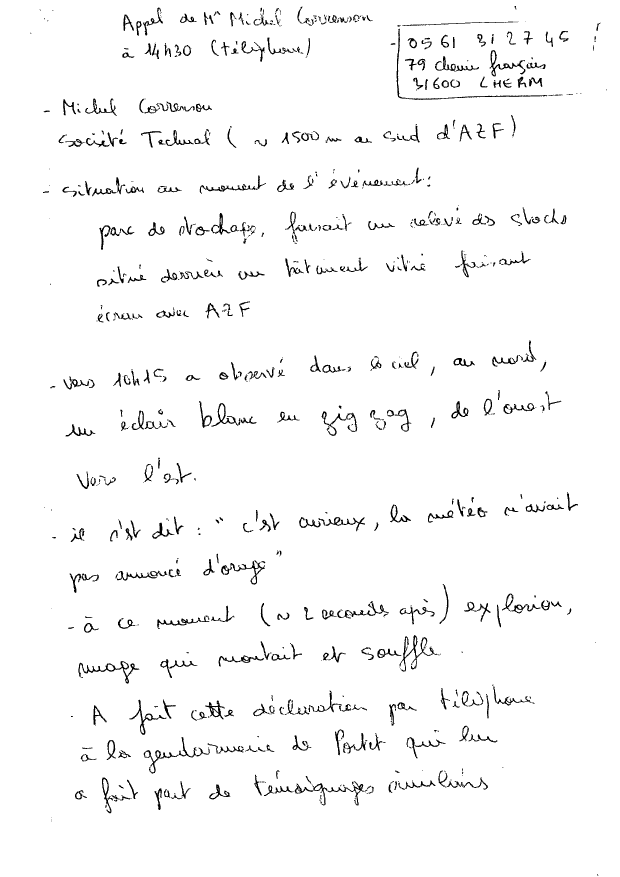 Appel de Mr Michel Correnson
à 14h30 (téléphone)
05 61 31 27 45
79 chemin français
31600 LHERM
- Michel Correnson
Société Technal (~ 1500 m au sud d'AZF)
- situation au moment de l'événement :
parc de stockage, faisait un relevé des stocks
situé derrière un bâtiment vitré faisant
écran avec AZF
- vers 10h15 a observé dans le ciel, au nord,
un éclair blanc en zig zag, de l'ouest
vers l'est.
- il s'est dit : "c'est curieux, la météo n'avait
pas annoncé d'orage"
- à ce moment (~ 2 secondes après) explosion,
nuage qui montait et souffle.
. A fait cette déclaration par téléphone
à la gendarmerie de Portet qui lui
a fait part de témoignages similaires